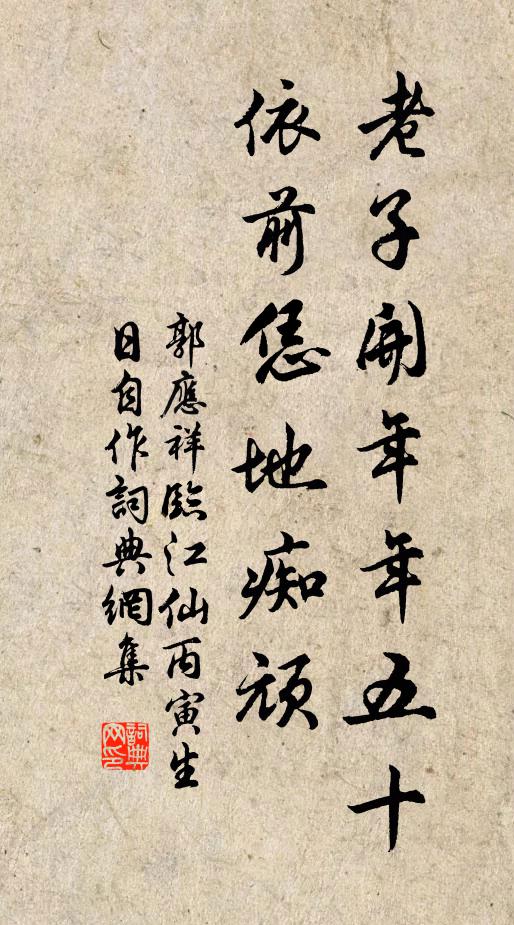 老子開年年五十
依前恁地痴頑
郭應祥臨江仙丙寅生
日自作詞典網集
詞典網印